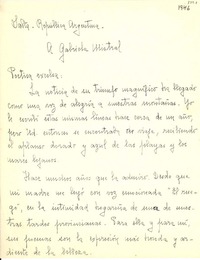 1946
Salta - República Argentina.
A Gabriela Mistral
Poetisa excelsa:
La noticia de tu triunfo magnífico ha llegado
como una voz de alegría a nuestras montañas. Yo
le escribí estas mismas líneas hace cosa de un año,
pero Ud. entonces se encontraba de viaje, recibiendo
el aplauso dorado y azul de las playas y los
mares lejanos.
Hace muchos años que la admiro. Desde que
mi madre me leyó con voz emocionada "El
en la intimidad hogareña de una de nues-
tras tardes provincianas. Para ella y para mí,
sus poemas son la expresión más honda y ar-
diente de la belleza.